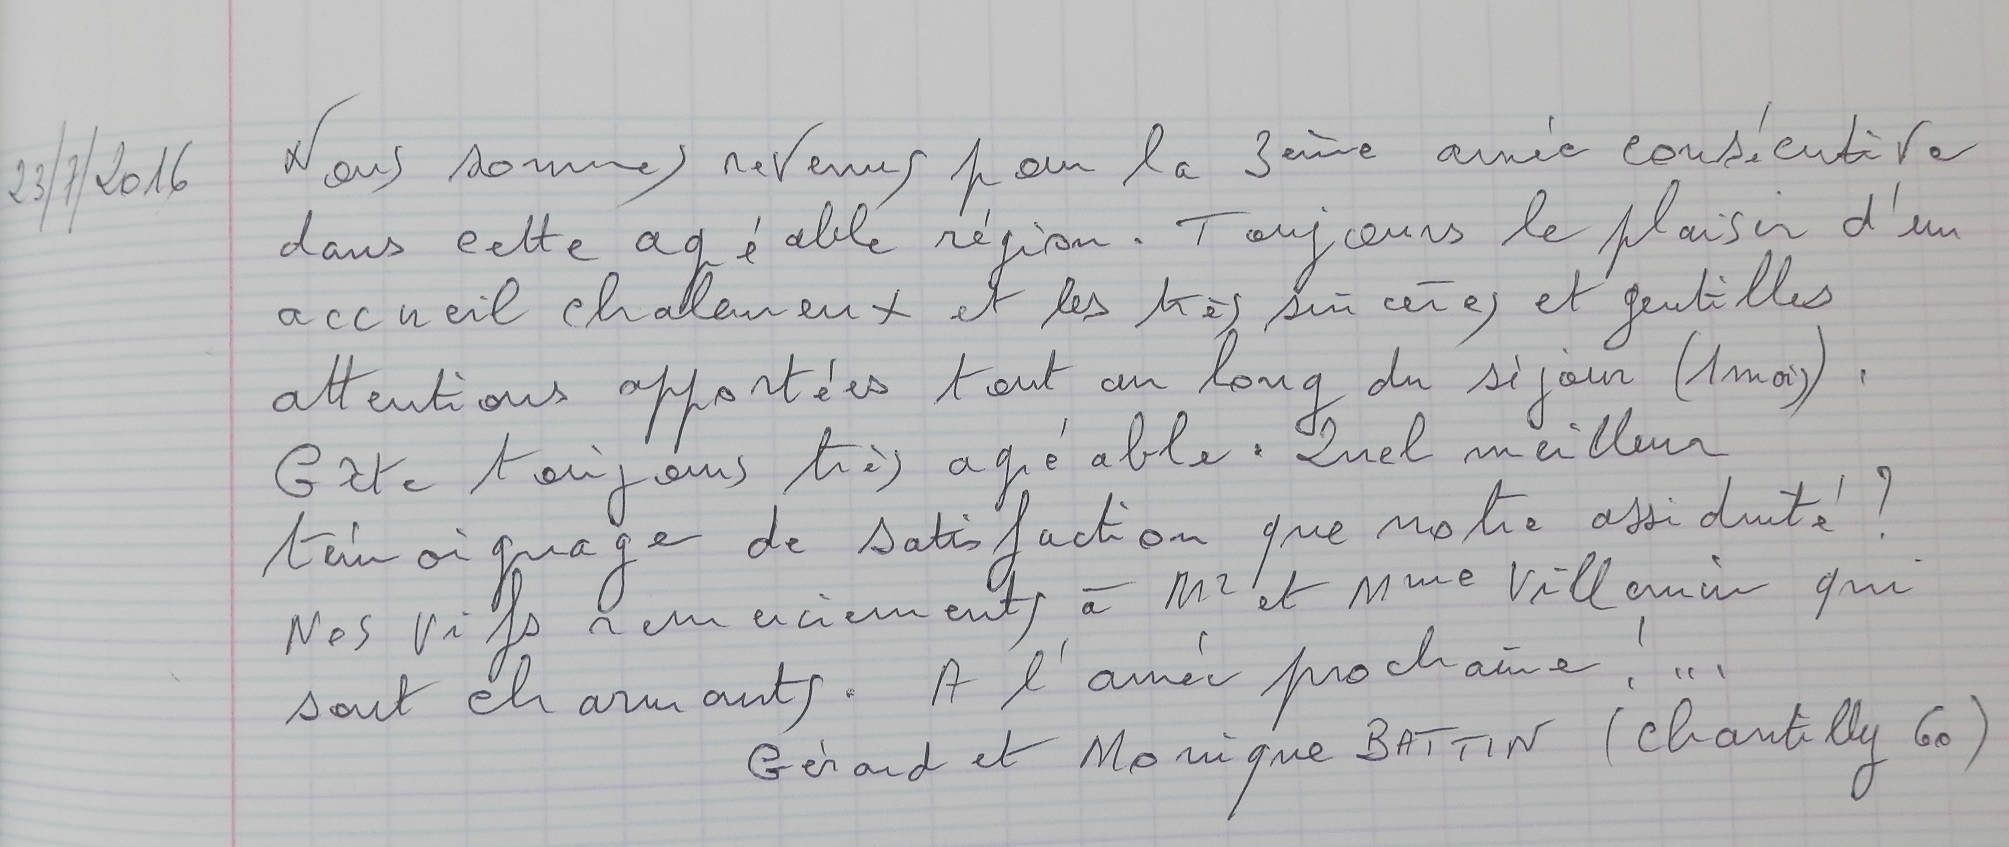 23/7/2016 Nous sommes revenus pour la 3ème année consécutive
dans cette agréable région. Toujours le plaisir d'un
accueil chaleureux et les très sincères et gentilles
attentions apportées tout au long du séjour (1 mois).
Gîte toujours très agréable. Quel meilleur
témoignage de satisfaction que notre assiduité ?
Nos vifs remerciements à Mr et Mme Villemin qui
sont charmants. A l'année prochaine ! ...
Gérard et Monique BATTIN (Chantilly 60)